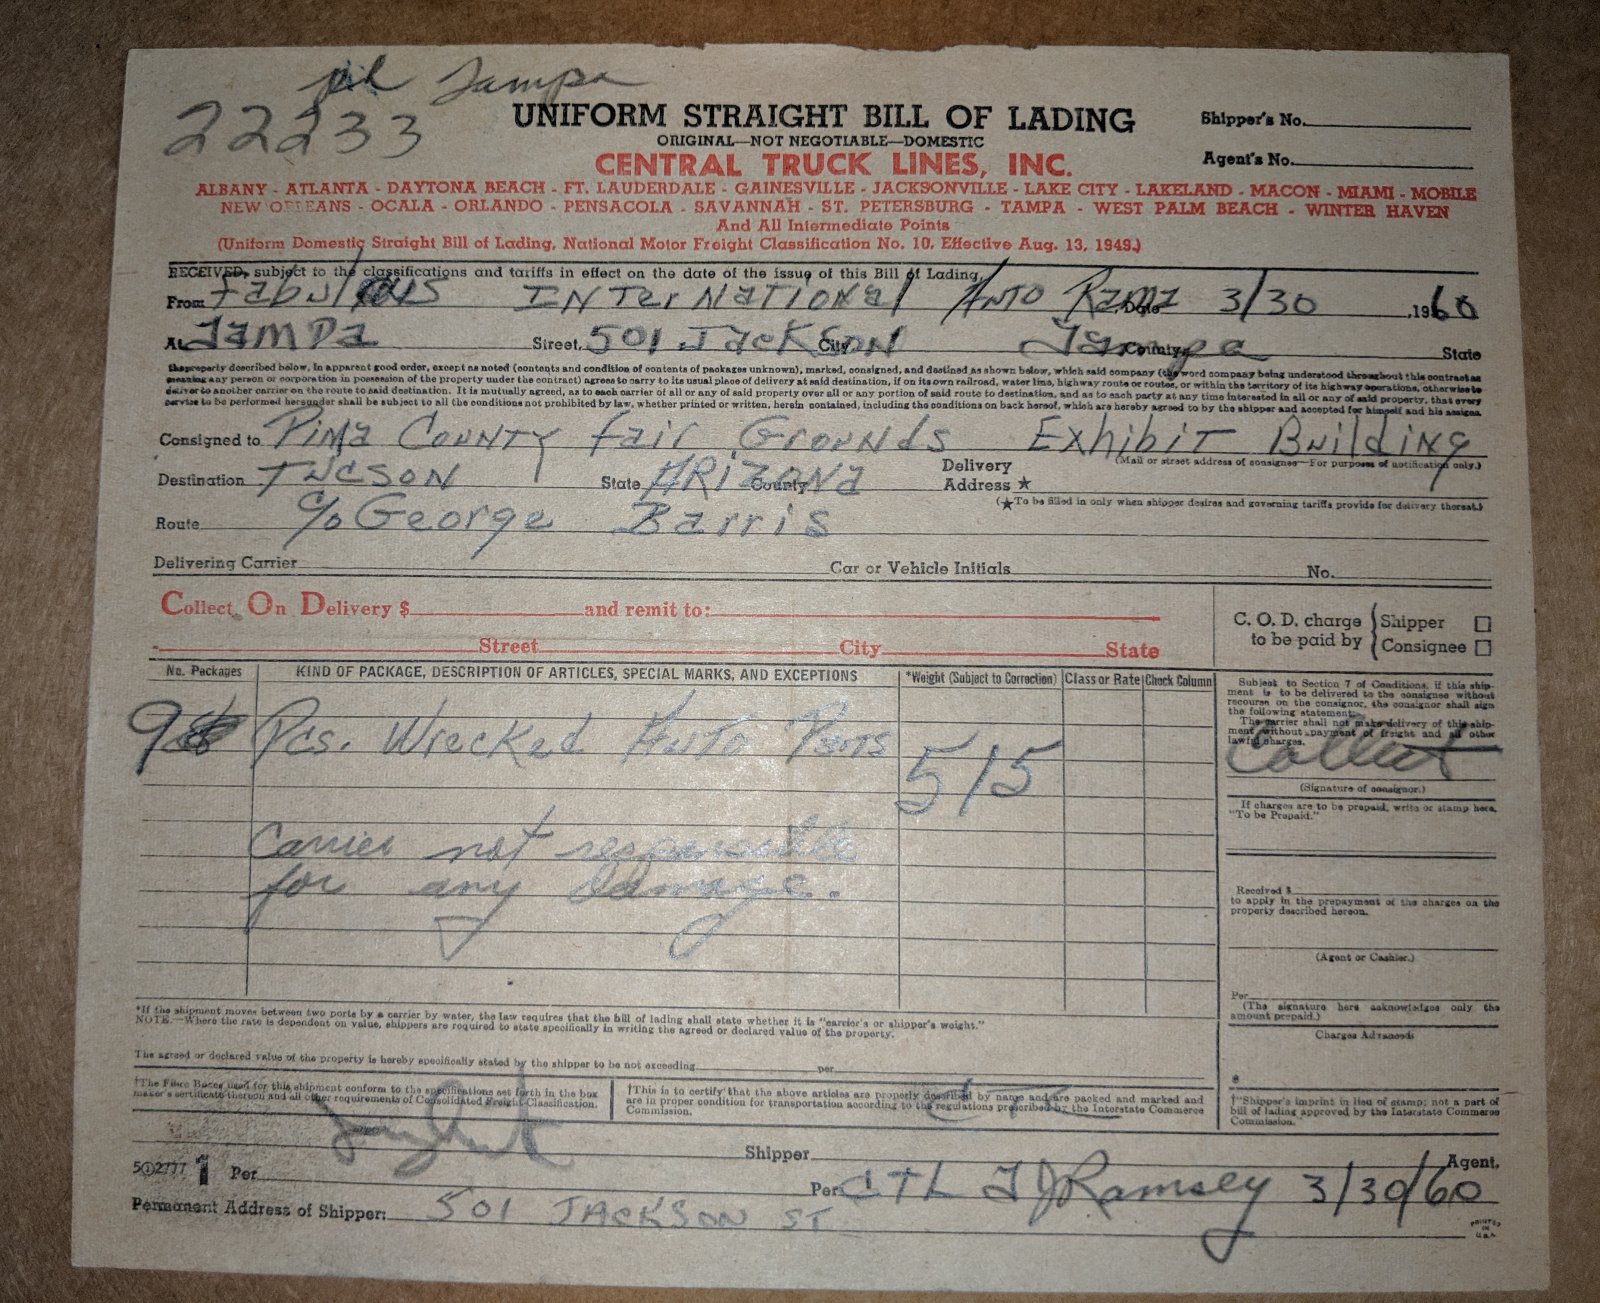 Tampa
22233
UNIFORM STRAIGHT BILL OF LADING
ORIGINAL—NOT NEGOTIABLE—DOMESTIC
Shipper's No.
Agent's No.
CENTRAL TRUCK LINES, INC.
ALBANY - ATLANTA - DAYTONA BEACH - FT. LAUDERDALE - GAINESVILLE - JACKSONVILLE - LAKE CITY - LAKELAND - MACON - MIAMI - MOBILE
NEW ORLEANS - OCALA - ORLANDO - PENSACOLA - SAVANNAH - ST. PETERSBURG - TAMPA - WEST PALM BEACH - WINTER HAVEN
And All Intermediate Points
(Uniform Domestic Straight Bill of Lading, National Motor Freight Classification No. 10, Effective Aug. 13, 1949.)
RECEIVED, subject to the classifications and tariffs in effect on the date of the issue of this Bill of Lading,
From Fabulous INTerNATIONal AuTO Rama Date 3/30 , 1960
At TAMPa Street, 501 JacKSON City Tampa County, State
the property described below, in apparent good order, except as noted (contents and condition of contents of packages unknown), marked, consigned, and destined as shown below, which said company (the word company being understood throughout this contract as
meaning any person or corporation in possession of the property under the contract) agrees to carry to its usual place of delivery at said destination, if on its own railroad, water line, highway route or routes, or within the territory of its highway operations, otherwise to
deliver to another carrier on the route to said destination. It is mutually agreed, as to each carrier of all or any of said property over all or any portion of said route to destination, and as to each party at any time interested in all or any of said property, that every
service to be performed hereunder shall be subject to all the conditions not prohibited by law, whether printed or written, herein contained, including the conditions on back hereof, which are hereby agreed to by the shipper and accepted for himself and his assigns.
Consigned to Pima COUNTY fair GrouNds ExhibiT Building
(Mail or street address of consignee—For purposes of notification only.)
Destination TUCSON State ARIZONa County Delivery Address ★
(★To be filled in only when shipper desires and governing tariffs provide for delivery thereat.)
Route c/o George Barris
Delivering Carrier Car or Vehicle Initials No.
Collect On Delivery $ and remit to:
Street City State
C. O. D. charge to be paid by
Shipper ☐
Consignee ☐
No. Packages KIND OF PACKAGE, DESCRIPTION OF ARTICLES, SPECIAL MARKS, AND EXCEPTIONS *Weight (Subject to Correction) Class or Rate Check Column
9 Pcs. Wrecked AuTo Parts 515
Carrier not responsible
for any damage.
Subject to Section 7 of Conditions, if this ship-
ment is to be delivered to the consignee without
recourse on the consignor, the consignor shall sign
the following statement:
The carrier shall not make delivery of this ship-
ment without payment of freight and all other
lawful charges.
Collect
(Signature of consignor.)
If charges are to be prepaid, write or stamp here,
"To be Prepaid."
Received $
to apply in the prepayment of the charges on the
property described hereon.
(Agent or Cashier.)
Per
(The signature here acknowledges only the
amount prepaid.)
Charges Advanced:
*If the shipment moves between two ports by a carrier by water, the law requires that the bill of lading shall state whether it is "carrier's or shipper's weight."
NOTE.—Where the rate is dependent on value, shippers are required to state specifically in writing the agreed or declared value of the property.
The agreed or declared value of the property is hereby specifically stated by the shipper to be not exceeding per
†The Fibre Boxes used for this shipment conform to the specifications set forth in the box
maker's certificate thereon and all other requirements of Consolidated Freight Classification.
†This is to certify that the above articles are properly described by name and are packed and marked and
are in proper condition for transportation according to the regulations prescribed by the Interstate Commerce
Commission.
†"Shipper's imprint in lieu of stamp; not a part of
bill of lading approved by the Interstate Commerce
Commission.
Shipper Agent.
1 Per
Per CTL TJRamsey 3/30/60
Permanent Address of Shipper: 501 JACKSON ST
PRINTED
IN
U.S.A.